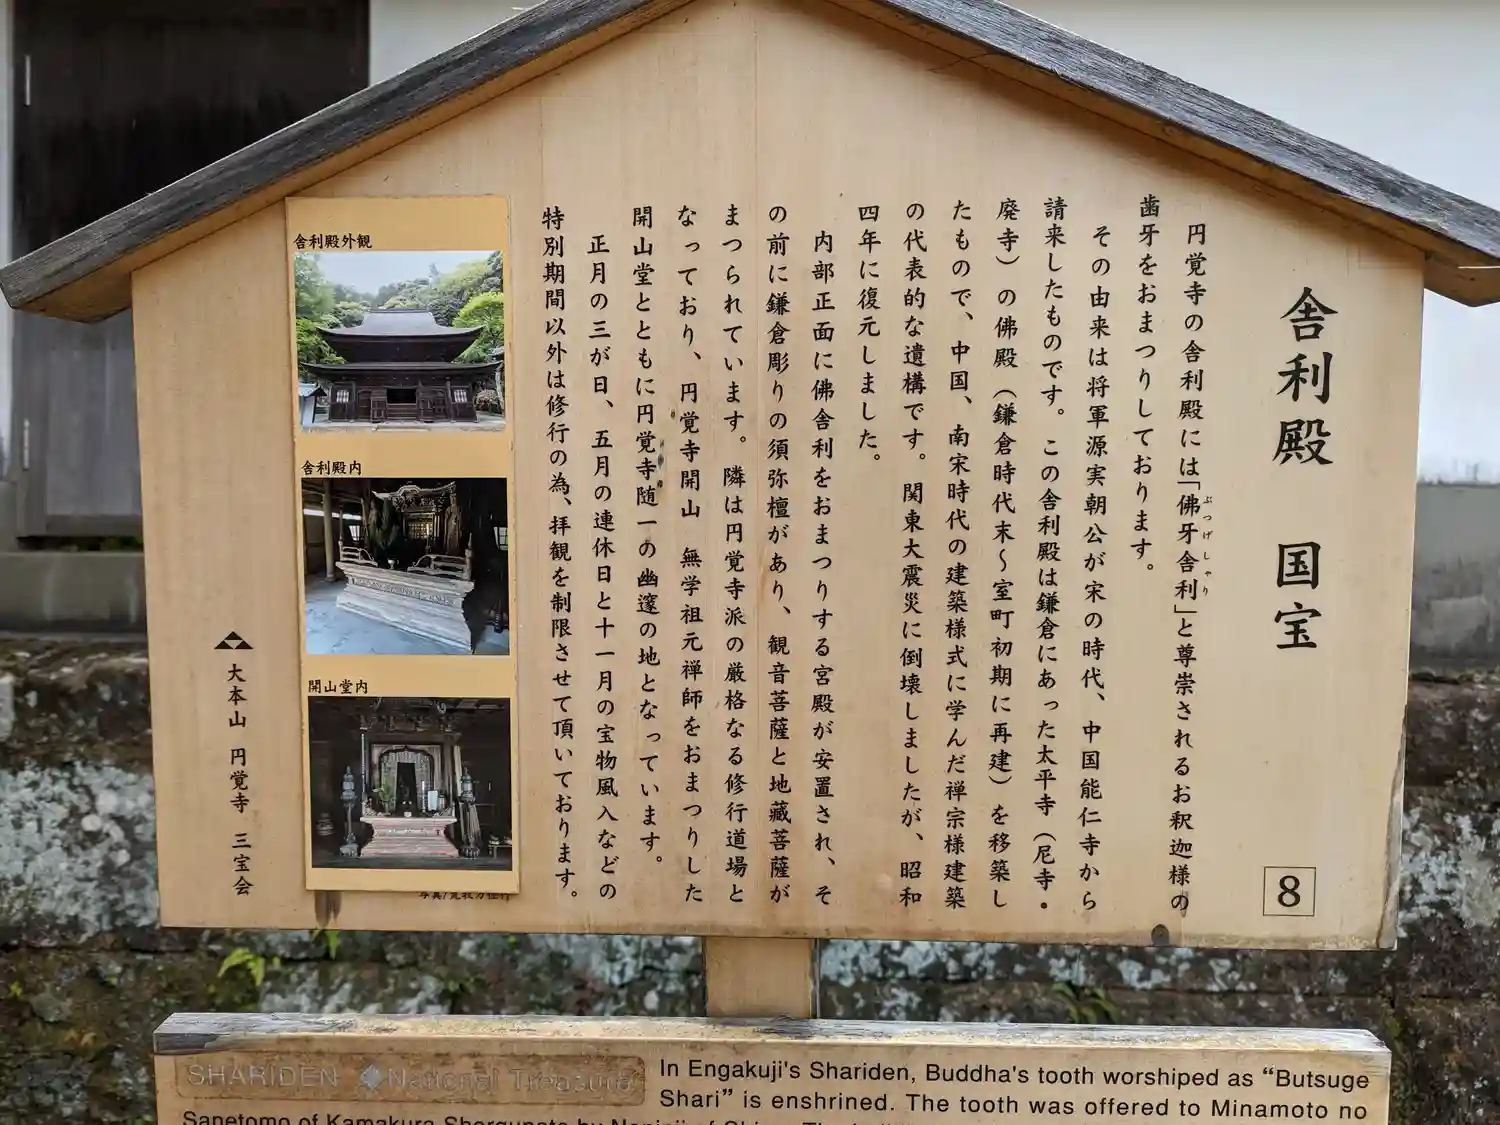 舎利殿　国宝
8
円覚寺の舎利殿には「佛牙舎利」と尊崇されるお釈迦様の
ぶつげしゃり
歯牙をおまつりしております。
その由来は将軍源実朝公が宋の時代、中国能仁寺から
請来したものです。この舎利殿は鎌倉にあった太平寺（尼寺・
廃寺）の佛殿（鎌倉時代末～室町初期に再建）を移築し
たもので、中国、南宋時代の建築様式に学んだ禅宗様建築
の代表的な遺構です。関東大震災に倒壊しましたが、昭和
四年に復元しました。
内部正面に佛舎利をおまつりする宮殿が安置され、そ
の前に鎌倉彫りの須弥壇があり、観音菩薩と地蔵菩薩が
まつられています。隣は円覚寺派の厳格なる修行道場と
なっており、円覚寺開山　無学祖元禅師をおまつりした
開山堂とともに円覚寺随一の幽邃の地となっています。
正月の三が日、五月の連休日と十一月の宝物風入などの
特別期間以外は修行の為、拝観を制限させて頂いております。
舎利殿外観
舎利殿内
開山堂内
大本山　円覚寺　三宝会
SHARIDEN ◆National Treasure
In Engakuji's Shariden, Buddha's tooth worshiped as “Butsuge
Shari” is enshrined. The tooth was offered to Minamoto no
Sanetomo of Kamakura Shogunate by